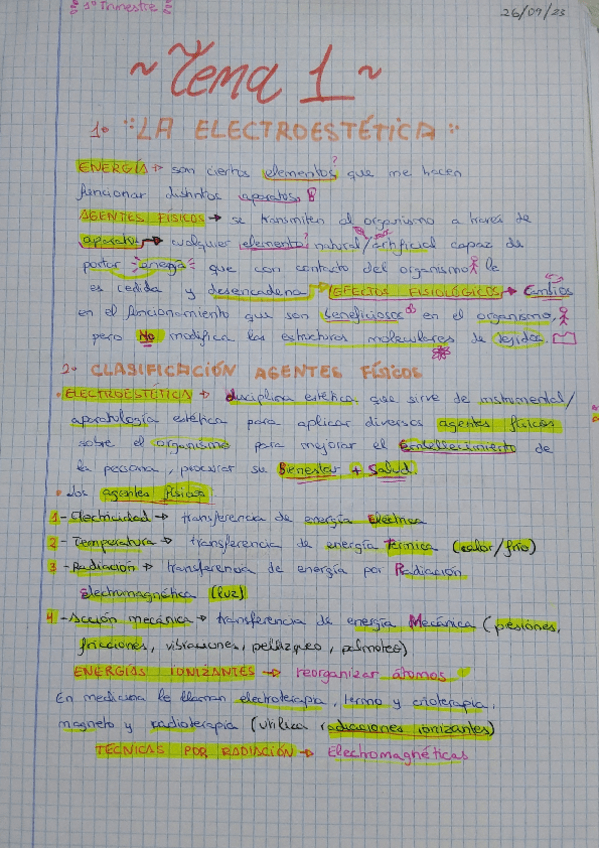 1º Trimestre
26/09/23
~ Tema 1 ~
1. "LA ELECTROESTÉTICA"
ENERGÍA → son ciertos elementos que me hacen
funcionar distintos aparatos.
AGENTES FÍSICOS → se transmiten al organismo a través de
aparatos → cualquier elemento natural/artificial capaz de
portar energía que con contacto del organismo le
es cedida y desencadena EFECTOS FISIOLÓGICOS → Cambios
en el funcionamiento que son beneficiosos en el organismo,
pero NO modifica las estructuras moleculares de tejidos.
2. CLASIFICACIÓN AGENTES FÍSICOS
ELECTROESTÉTICA → disciplina estética que sirve de instrumental/
aparatología estética para aplicar diversos agentes físicos
sobre el organismo para mejorar el Embellecimiento de
la persona, procurar su Bienestar + Salud.
Los agentes físicos:
1 - Electricidad → transferencia de energía Eléctrica
2 - Temperatura → transferencia de energía Térmica (calor/frío)
3 - Radiación → transferencia de energía por Radiación
Electromagnética (luz)
4 - Acción mecánica → transferencia de energía Mecánica (presiones,
fricciones, vibraciones, pellizqueo, palmoteo)
ENERGÍAS IONIZANTES → reorganizar átomos
En medicina le llaman electroterapia, termo y crioterapia,
magneto y radioterapia (utiliza radiacciones ionizantes)
TÉCNICAS POR RADIACIÓN → Electromagnéticas